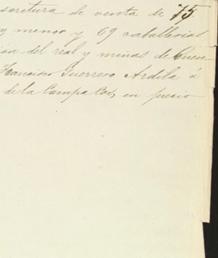 scritura de venta de 75
y menor y 69 caballerias
del real y minas de Cuen
Francisco Guerrero Ardila á
de la Campa Cos, en precio